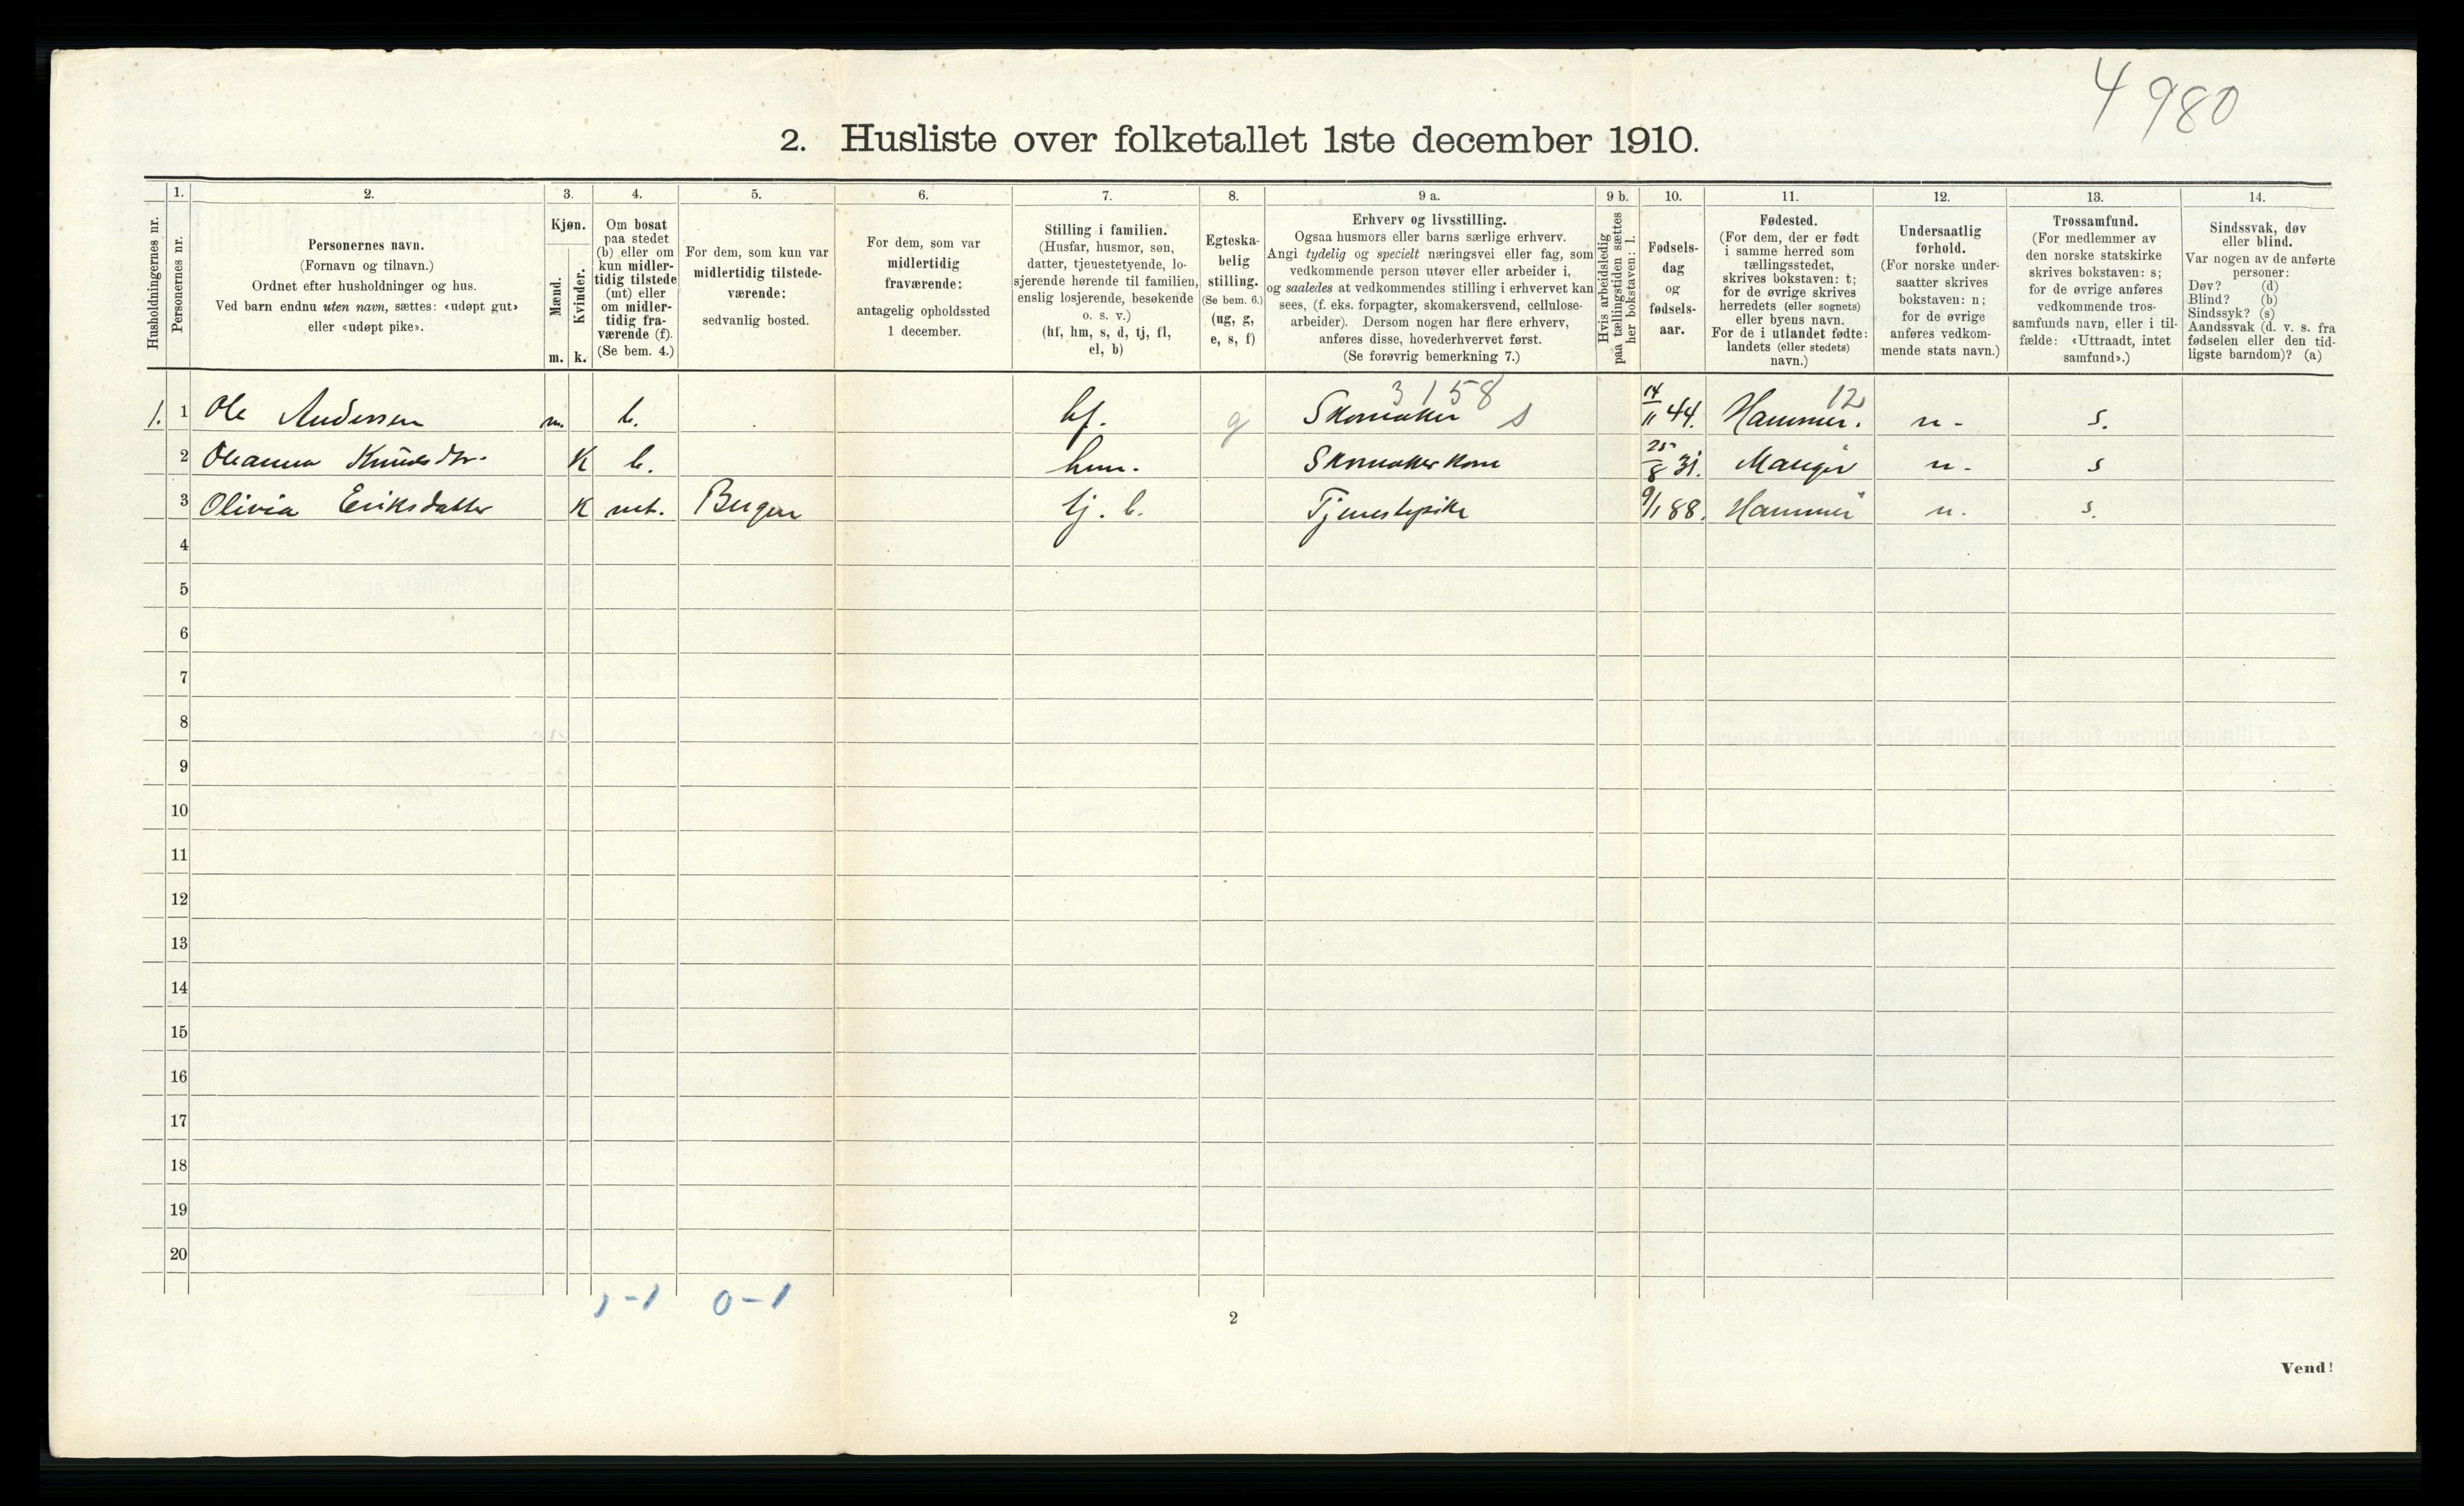 4980
2. Husliste over folketallet 1ste december 1910.
Husholdningernes nr.
1. Personernes nr.
2. Personernes navn.
(Fornavn og tilnavn.)
Ordnet efter husholdninger og hus.
Ved barn endnu uten navn, sættes: «udøpt gut»
eller «udøpt pike».
3. Kjøn.
Mænd. m.
Kvinder. k.
4. Om bosat
paa stedet
(b) eller om
kun midler-
tidig tilstede
(mt) eller
om midler-
tidig fra-
værende (f).
(Se bem. 4.)
5. For dem, som kun var
midlertidig tilstede-
værende:
sedvanlig bosted.
6. For dem, som var
midlertidig
fraværende:
antagelig opholdssted
1 december.
7. Stilling i familien.
(Husfar, husmor, søn,
datter, tjenestetyende, lo-
sjerende hørende til familien,
enslig losjerende, besøkende
o. s. v.)
(hf, hm, s, d, tj, fl,
el, b)
8. Egteska-
belig
stilling.
(Se bem. 6.)
(ug, g,
e, s, f)
9 a. Erhverv og livsstilling.
Ogsaa husmors eller barns særlige erhverv.
Angi tydelig og specielt næringsvei eller fag, som
vedkommende person utøver eller arbeider i,
og saaledes at vedkommendes stilling i erhvervet kan
sees, (f. eks. forpagter, skomakersvend, cellulose-
arbeider). Dersom nogen har flere erhverv,
anføres disse, hovederhvervet først.
(Se forøvrig bemerkning 7.)
9 b. Hvis arbeidsledig
paa tællingstiden sættes
her bokstaven: l.
10. Fødsels-
dag
og
fødsels-
aar.
11. Fødested.
(For dem, der er født
i samme herred som
tællingsstedet,
skrives bokstaven: t;
for de øvrige skrives
herredets (eller sognets)
eller byens navn.
For de i utlandet fødte:
landets (eller stedets)
navn.)
12. Undersaatlig
forhold.
(For norske under-
saatter skrives
bokstaven: n;
for de øvrige
anføres vedkom-
mende stats navn.)
13. Trossamfund.
(For medlemmer av
den norske statskirke
skrives bokstaven: s;
for de øvrige anføres
vedkommende tros-
samfunds navn, eller i til-
fælde: «Uttraadt, intet
samfund».)
14. Sindssvak, døv
eller blind.
Var nogen av de anførte
personer:
Døv? (d)
Blind? (b)
Sindssyk? (s)
Aandssvak (d. v. s. fra
fødselen eller den tid-
ligste barndom)? (a)
3158 12
1. 1 Ole Anderssen m. b. hf. g Skomaker s 14/11 44. Hammer. n - s.
2 Oleanna Knudsdtr. K b. hm. Skomakerkone 25/8 31. Manger n - s
3 Olivia Eriksdatter K mt. Bergen tj. b. Tjenestepike 9/1 88. Hammer n. s.
4
5
6
7
8
9
10
11
12
13
14
15
16
17
18
19
20
1-1 0-1
2
Vend!